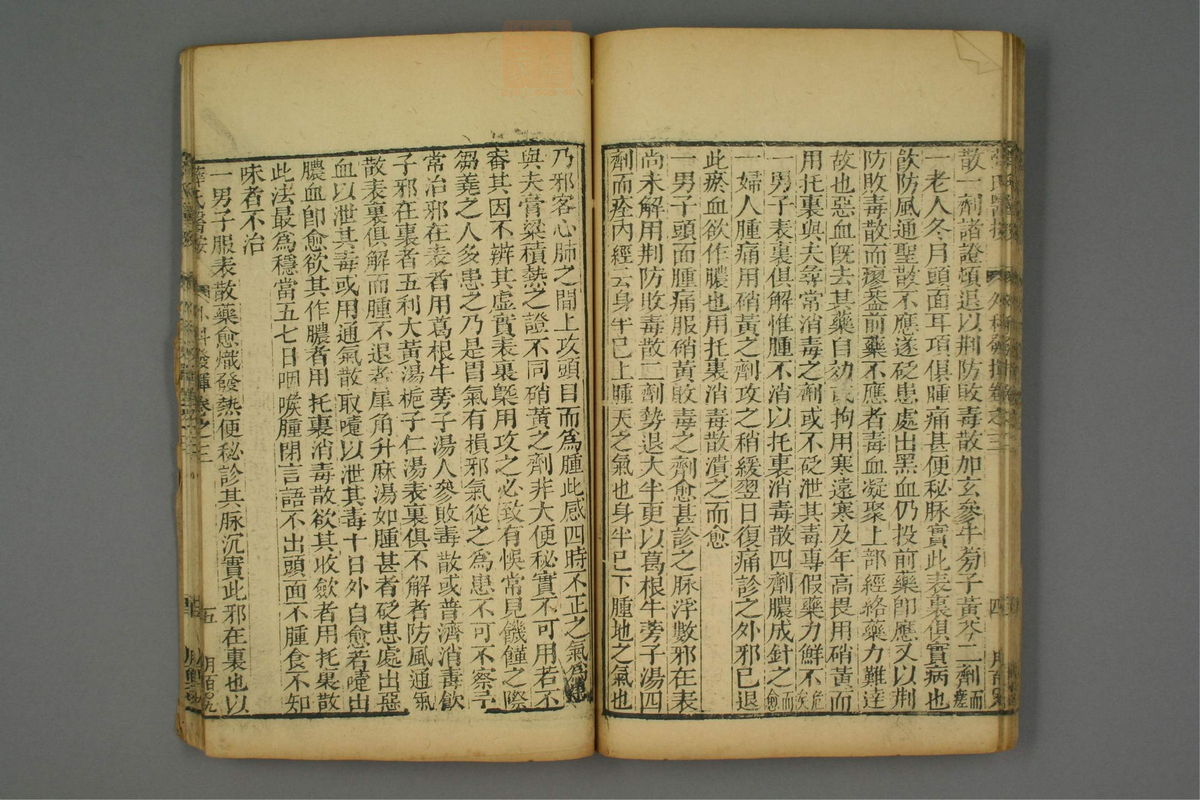 散一劑諸證頓退以荆防敗毒散加玄參牛蒡子黃芩二劑而瘥
一老人冬月頭面耳項俱腫痛甚便秘脉實此表裏俱實病也
飲防風通聖散不應遂砭患處出黑血仍投前藥即應又以荆
防敗毒散而瘳葢前藥不應者毒血凝聚上部經絡藥力難達
故也惡血旣去其藥自効或拘用寒遠寒及年高畏用硝黃而
用托裏與夫尋常消毒之劑或不砭泄其毒專假藥力鮮不危矣
一男子表裏俱解惟腫不消以托裏消毒散四劑膿成針之而愈
一婦人腫痛用硝黃之劑攻之稍緩翌日復痛診之外邪已退
此瘀血欲作膿也用托裏消毒散潰之而愈
一男子頭面腫痛服硝黃敗毒之劑愈甚診之脉浮數邪在表
尚未解用荆防敗毒散二劑勢退大半更以葛根牛蒡子湯四
劑而痊內經云身半已上腫天之氣也身半已下腫地之氣也
乃邪客心肺之間上攻頭目而爲腫此感四時不正之氣
與夫膏粱積熱之證不同硝黃之劑非大便秘實不可用若不
審其因不辨其虛實表裏槩用攻之必致有悞常見饑饉之際
芻蕘之人多患之乃是胃氣有損邪氣從之爲患不可不察予
常治邪在表者用葛根牛蒡子湯人參敗毒散或普濟消毒飲
子邪在裏者五利大黃湯梔子仁湯表裏俱不解者防風通氣
散表裏俱解而腫不退者犀角升麻湯如腫甚者砭患處出惡
血以泄其毒或用通氣散取嚏以泄其毒十日外自愈若嚏出
膿血卽愈欲其作膿者用托裏消毒散欲其收歛者用托裏散
此法最爲穩當五七日咽喉腫閉言語不出頭面不腫食不知
味者不治
一男子服表散藥愈熾發熱便秘診其脉沉實此邪在裏也以
薛氏醫按
外科發揮卷之三
五